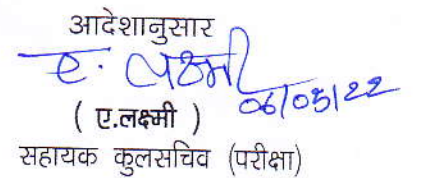 आदेशानुसार
ए. लक्ष्मी
06/05/22
( ए.लक्ष्मी )
सहायक कुलसचिव (परीक्षा)